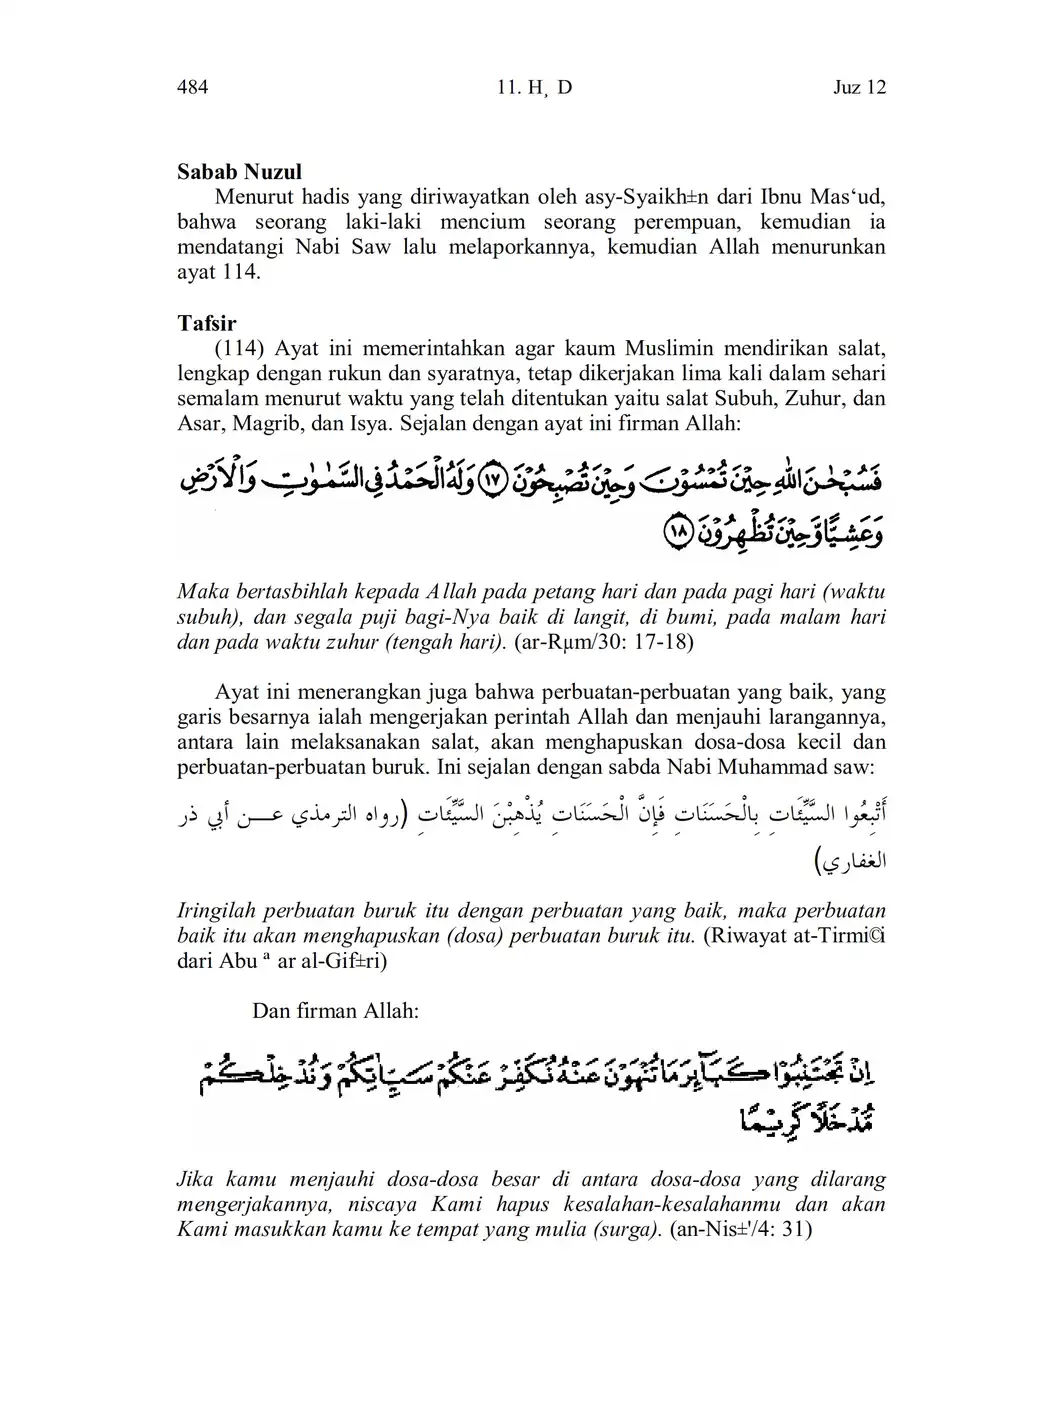 484 11. H¸ D Juz 12
Sabab Nuzul
Menurut hadis yang diriwayatkan oleh asy-Syaikh±n dari Ibnu Mas‘ud,
bahwa seorang laki-laki mencium seorang perempuan, kemudian ia
mendatangi Nabi Saw lalu melaporkannya, kemudian Allah menurunkan
ayat 114.
Tafsir
(114) Ayat ini memerintahkan agar kaum Muslimin mendirikan salat,
lengkap dengan rukun dan syaratnya, tetap dikerjakan lima kali dalam sehari
semalam menurut waktu yang telah ditentukan yaitu salat Subuh, Zuhur, dan
Asar, Magrib, dan Isya. Sejalan dengan ayat ini firman Allah:
فَسُبْحٰنَ اللّٰهِ حِيْنَ تُمْسُوْنَ وَحِيْنَ تُصْبِحُوْنَ ۝١٧ وَلَهُ الْحَمْدُ فِى السَّمٰوٰتِ وَالْاَرْضِ
وَعَشِيًّا وَّحِيْنَ تُظْهِرُوْنَ ۝١٨
Maka bertasbihlah kepada Allah pada petang hari dan pada pagi hari (waktu
subuh), dan segala puji bagi-Nya baik di langit, di bumi, pada malam hari
dan pada waktu zuhur (tengah hari). (ar-Rµm/30: 17-18)
Ayat ini menerangkan juga bahwa perbuatan-perbuatan yang baik, yang
garis besarnya ialah mengerjakan perintah Allah dan menjauhi larangannya,
antara lain melaksanakan salat, akan menghapuskan dosa-dosa kecil dan
perbuatan-perbuatan buruk. Ini sejalan dengan sabda Nabi Muhammad saw:
أَتْبِعُوا السَّيِّئَاتِ بِالْحَسَنَاتِ فَإِنَّ الْحَسَنَاتِ يُذْهِبْنَ السَّيِّئَاتِ (رواه الترمذي عـــن أبي ذر
الغفاري)
Iringilah perbuatan buruk itu dengan perbuatan yang baik, maka perbuatan
baik itu akan menghapuskan (dosa) perbuatan buruk itu. (Riwayat at-Tirmi©i
dari Abu ª ar al-Gif±ri)
Dan firman Allah:
اِنْ تَجْتَنِبُوْا كَبَاۤىِٕرَ مَا تُنْهَوْنَ عَنْهُ نُكَفِّرْ عَنْكُمْ سَيِّاٰتِكُمْ وَنُدْخِلْكُمْ
مُّدْخَلًا كَرِيْمًا
Jika kamu menjauhi dosa-dosa besar di antara dosa-dosa yang dilarang
mengerjakannya, niscaya Kami hapus kesalahan-kesalahanmu dan akan
Kami masukkan kamu ke tempat yang mulia (surga). (an-Nis±'/4: 31)